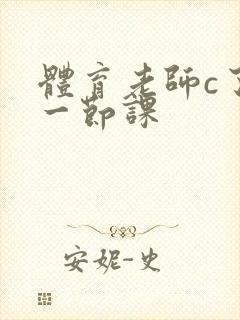 體育老師c了
一節課
安妮-史